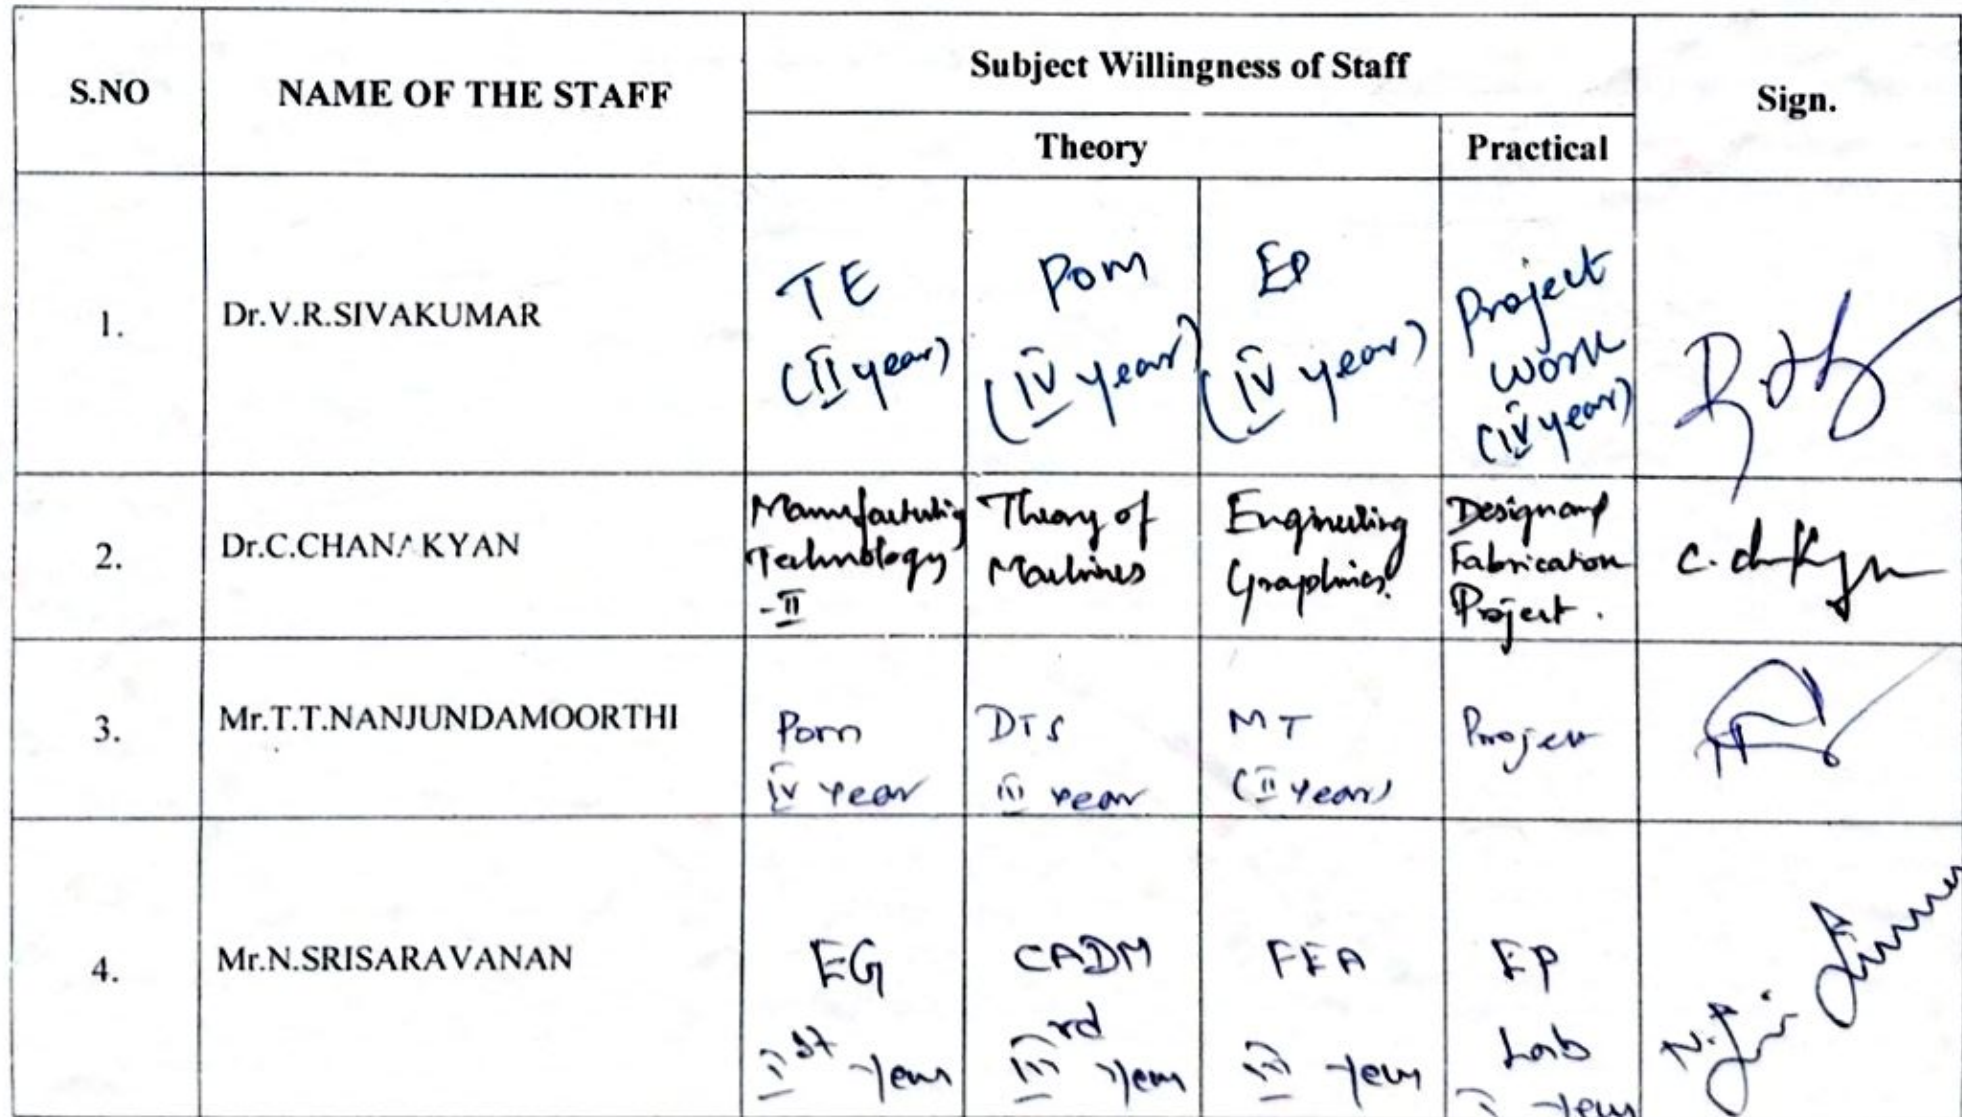 S.NO
NAME OF THE STAFF
Subject Willingness of Staff
Sign.
Theory
Practical
1.
Dr.V.R.SIVAKUMAR
TE
(II year)
POM
(IV year)
EP
(IV year)
Project
work
(IV year)
2.
Dr.C.CHANAKYAN
Manufacturing
Technology
-II
Theory of
Machines
Engineering
Graphics.
Design and
Fabrication
Project.
3.
Mr.T.T.NANJUNDAMOORTHI
Pom
IV Year
DTS
III year
MT
(II Year)
Project
4.
Mr.N.SRISARAVANAN
EG
Ist Year
CADM
IIIrd Year
FEA
III Year
EP
Lab
I Year